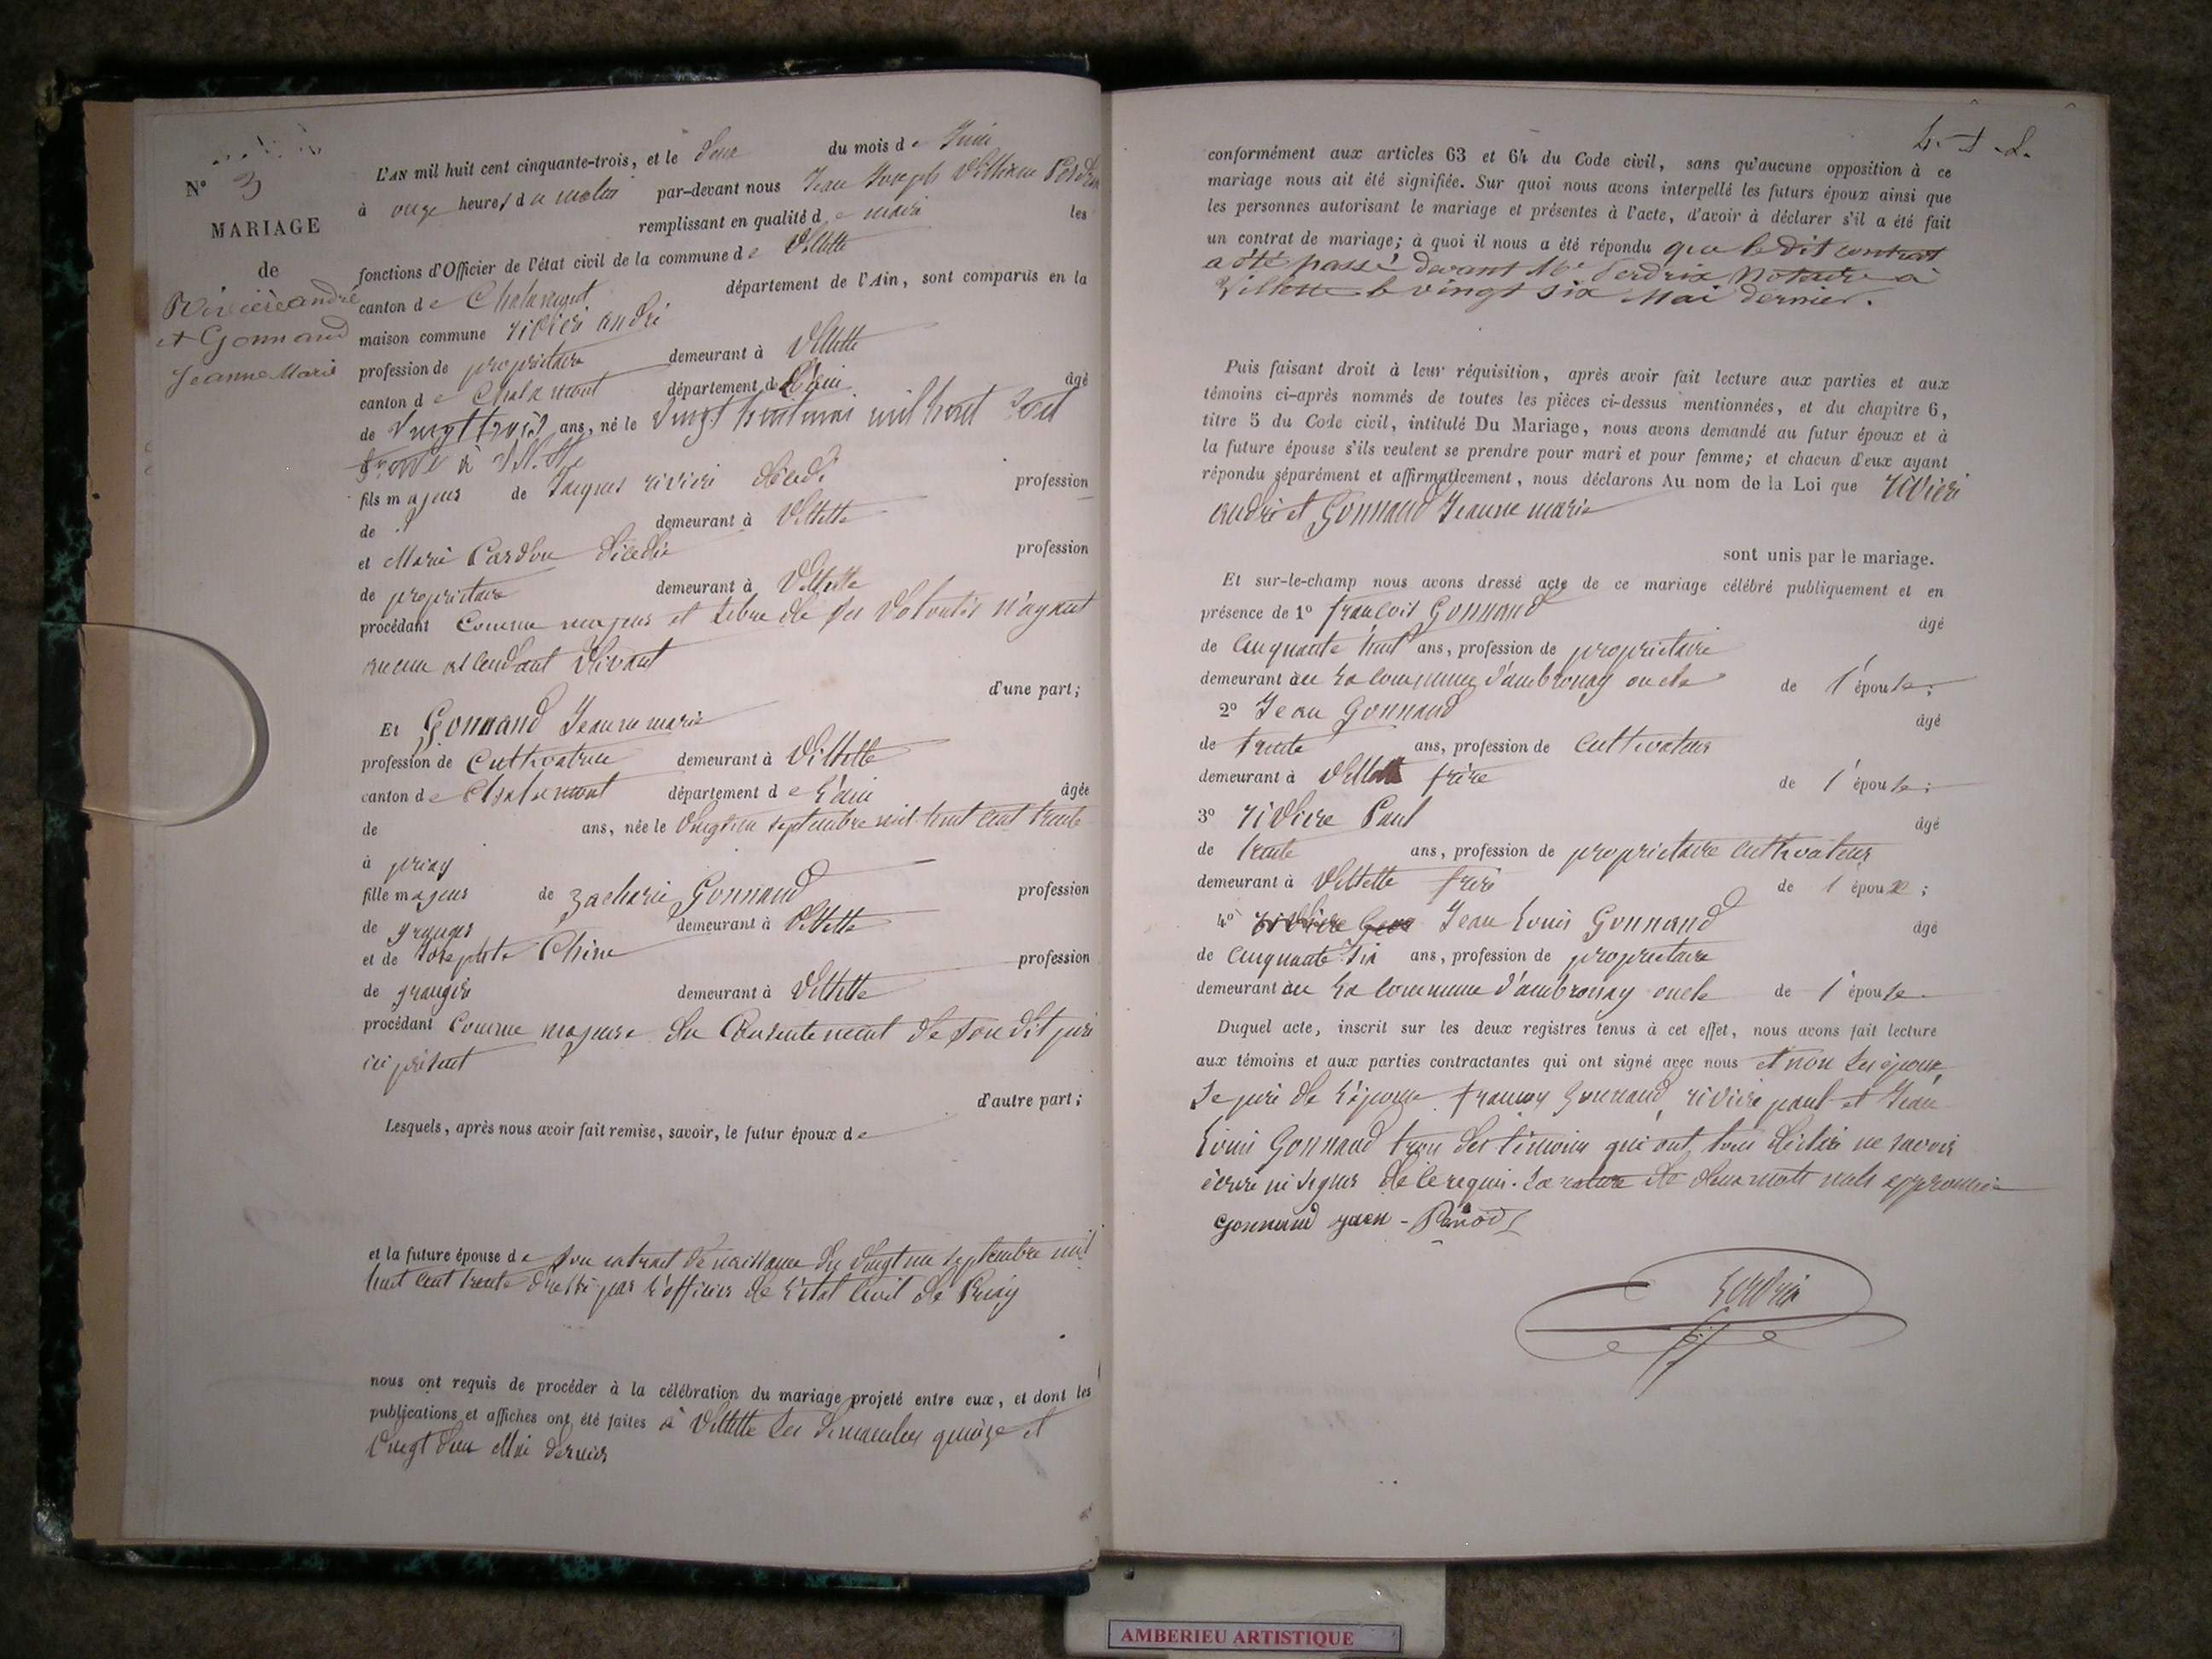 N° 3
MARIAGE
de
Rivière andré
et Gonnand
Jeanne Marie
L'AN mil huit cent cinquante-trois, et le deux du mois de Juin
à onze heures du matin par-devant nous Jean Joseph Perdrix
remplissant en qualité de maire les
fonctions d'Officier de l'état civil de la commune de Villette
canton de Chalamont département de l'Ain, sont comparus en la
maison commune riviere andré
profession de proprietaire demeurant à Villette
canton de Chalamont département de l'ain âgé
de vingt trois ans, né le vingt huit mai mil huit cent
trente à Villette
fils majeur de Jacques riviere décédé profession
de demeurant à Villette
et Marie décédée profession
de proprietaire demeurant à Villette
procédant Comme majeur et libre de ses volontés n'ayant
aucun ascendant vivant
d'une part;
Et Gonnand Jeanne marie
profession de Cultivatrice demeurant à Villette
canton de Chalamont département de l'ain âgée
de ans, née le vingt un septembre mil huit cent trente
à priay
fille majeur de zacharie Gonnand profession
de granger demeurant à Villette
et de Josephte profession
de grangere demeurant à Villette
procédant Comme majeure du Consentement de son dit père
ici présent
d'autre part;
Lesquels, après nous avoir fait remise, savoir, le futur époux de
et la future épouse de son extrait de naissance du vingt un septembre mil
huit cent trente dressé par l'officier de l'état civil de Priay
nous ont requis de procéder à la célébration du mariage projeté entre eux, et dont les
publications et affiches ont été faites à Villette les dimanches quinze et
vingt deux Mai dernier
conformément aux articles 63 et 64 du Code civil, sans qu'aucune opposition à ce
mariage nous ait été signifiée. Sur quoi nous avons interpellé les futurs époux ainsi que
les personnes autorisant le mariage et présentes à l'acte, d'avoir à déclarer s'il a été fait
un contrat de mariage; à quoi il nous a été répondu que le dit contrat
a été passé devant Me Perdrix Notaire à
Villette le vingt six Mai dernier.
Puis faisant droit à leur réquisition, après avoir fait lecture aux parties et aux
témoins ci-après nommés de toutes les pièces ci-dessus mentionnées, et du chapitre 6,
titre 5 du Code civil, intitulé Du Mariage, nous avons demandé au futur époux et à
la future épouse s'ils veulent se prendre pour mari et pour femme; et chacun d'eux ayant
répondu séparément et affirmativement, nous déclarons Au nom de la Loi que riviere
andré et Gonnand Jeanne marie
sont unis par le mariage.
Et sur-le-champ nous avons dressé acte de ce mariage célébré publiquement et en
présence de 1° françois Gonnand âgé
de cinquante huit ans, profession de proprietaire
demeurant en la commune d'ambronay oncle de l'épouse;
2° Jean Gonnand âgé
de trente ans, profession de cultivateur
demeurant à Villette frère de l'épouse;
3° riviere Paul âgé
de trente ans, profession de proprietaire cultivateur
demeurant à Villette frère de l'époux;
4° riviere Jean Louis Gonnand âgé
de cinquante six ans, profession de proprietaire
demeurant en la commune d'ambronay oncle de l'épouse
Duquel acte, inscrit sur les deux registres tenus à cet effet, nous avons fait lecture
aux témoins et aux parties contractantes qui ont signé avec nous et non les époux,
le père de l'épouse, françois Gonnand, riviere paul et Jean
Louis Gonnand trois des témoins qui ont tous déclaré ne savoir
écrire ni signer de ce requis. La rature de deux mots nuls approuvée
gonnand
Perdrix
AMBERIEU ARTISTIQUE